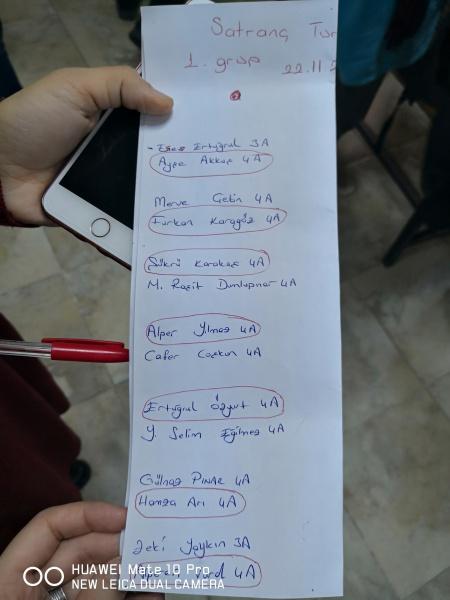 Satranç Tur
1. grup 22.11
- Enes Ertuğrul 3A
Ayşe Akkuş 4A
Merve Çetin 4A
Furkan Karagöz 4A
Şükrü Karakaş 4A
M. Raşit Dumlupınar 4A
Alper Yılmaz 4A
Cafer Coşkun 4A
Ertuğrul Özyurt 4A
Y. Selim Eğilmez 4A
Gülnaz PINAR 4A
Hamza Arı 4A
Zeki Yaykın 3A
4A
HUAWEI Mate 10 Pro
NEW LEICA DUAL CAMERA